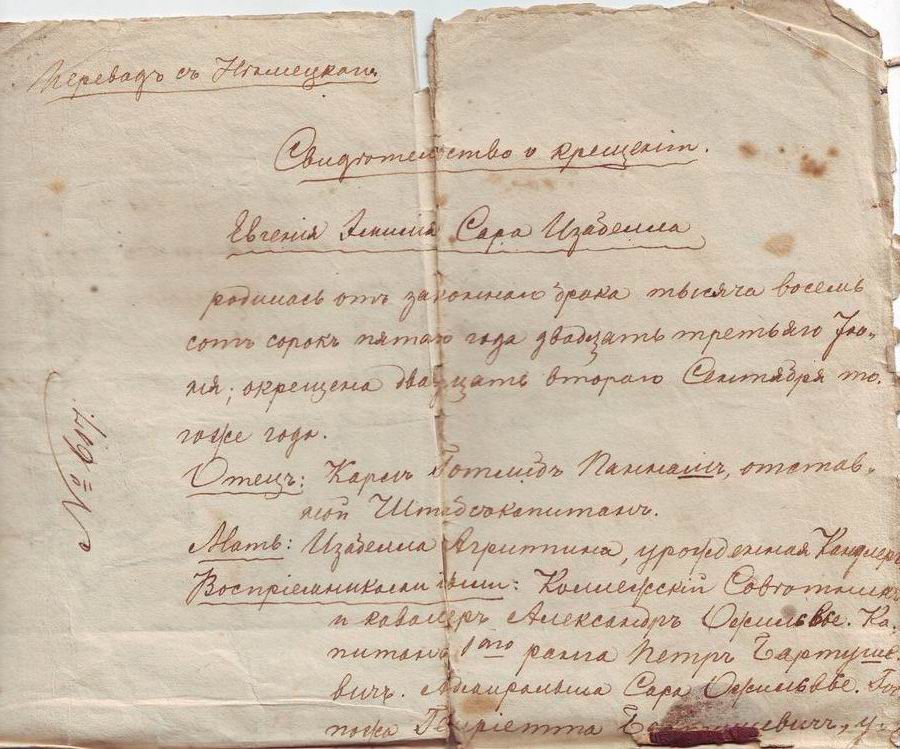 Переводъ съ Нѣмецкаго.
Свидѣтельство о крещеніи.
Евгенія Эмилія Сара Изабелла
родилась отъ законнаго брака тысяча восемь
сотъ сорокъ пятаго года двадцать третьяго Ію-
ня; окрещена двадцать втораго Сентября то-
гоже года.
№
Отецъ: Карлъ Готлибъ Панналъ, отстав-
ной Штабсъ-капитанъ.
Мать: Изабелла Агриппина, урожденная Кандлеръ
Воспріемниками были: Коллежскій Совѣтникъ
и кавалеръ Александръ Ожильвье. Ка-
питанъ 1го ранга Петръ Бартуше-
вичъ. Адмиральша Сара Ожильвье. Гос
пожа Генріетта